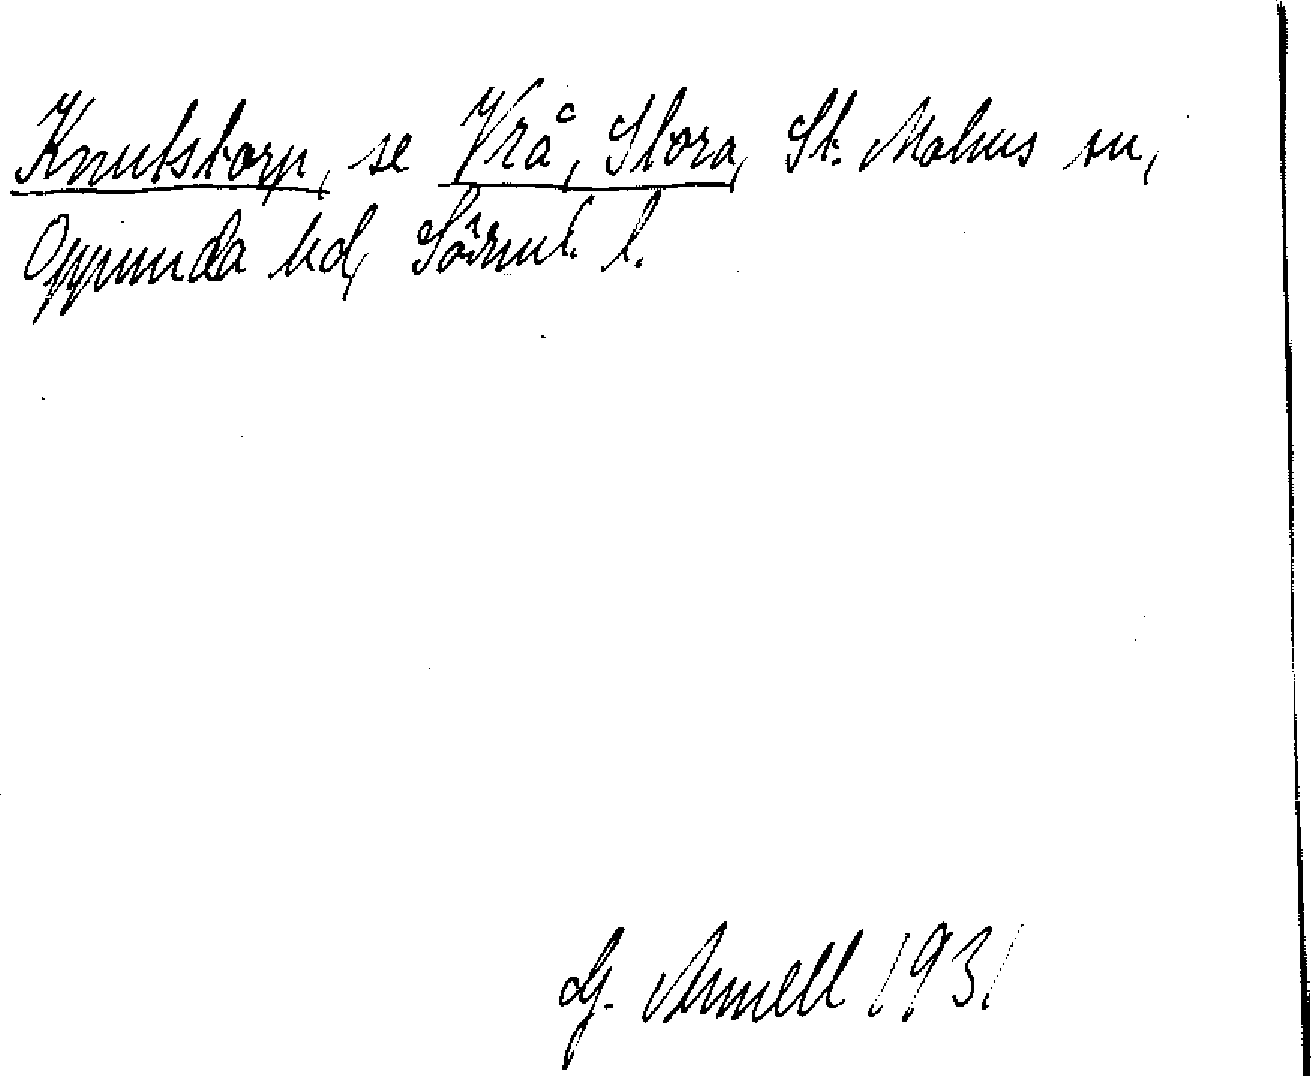 Knutstorp, se Vrå, Stora, St. Malms sn,
Oppunda hd, Södml. l.
G. Armell 1931